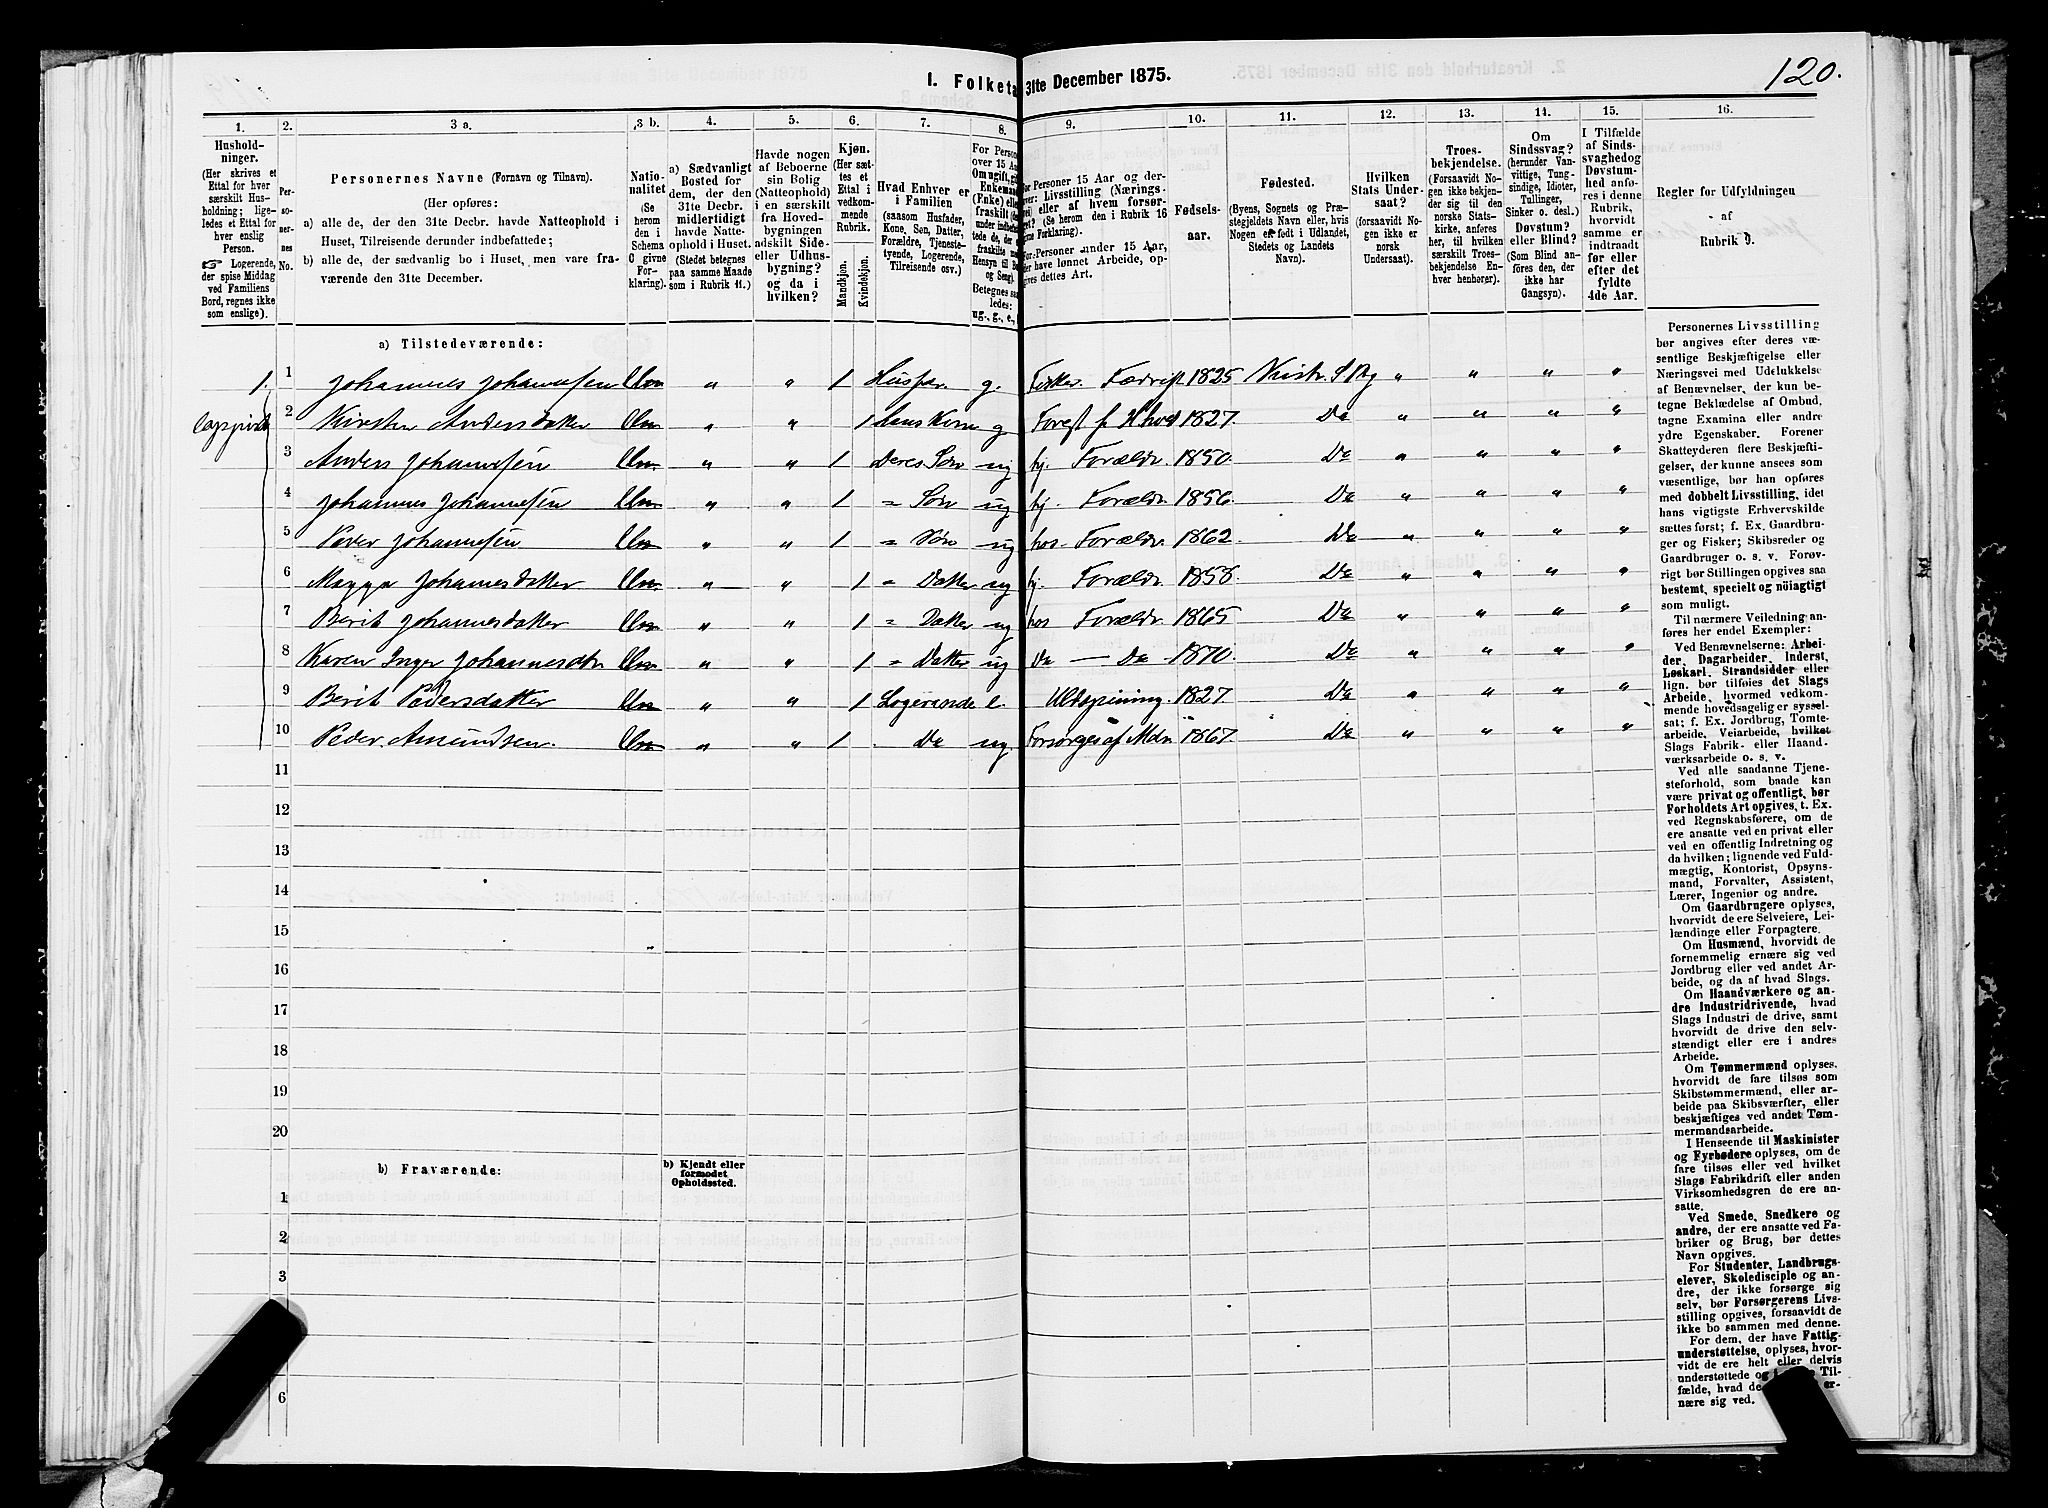 120.
1. Folketa 31te December 1875.
1. 2. 3 a. 3 b. 4. 5. 6. 7. 8. 9. 10. 11. 12. 13. 14. 15. 16.
Hushold-
ninger.
(Her skrives et
Ettal for hver
særskilt Hus-
holdning; lige-
ledes et Ettal for
hver enslig
Person.
☞ Logerende,
der spise Middag
ved Familiens
Bord, regnes ikke
som enslige).
Per-
so-
ner-
nes
No.
Personernes Navne (Fornavn og Tilnavn).
(Her opføres:
a) alle de, der den 31te Decbr. havde Natteophold i
Huset, Tilreisende derunder indbefattede;
b) alle de, der sædvanlig bo i Huset, men vare fra-
værende den 31te December.
Natio-
nalitet
(Se
herom
den i
Schema
C givne
For-
klaring).
a) Sædvanligt
Bosted for
dem, der den
31te Decbr.
midlertidigt
havde Natte-
ophold i Huset.
(Stedet betegnes
paa samme Maade
som i Rubrik 11.)
Havde nogen
af Beboerne
sin Bolig
(Natteophold)
i en særskilt
fra Hoved-
bygningen
adskilt Side-
eller Udhus-
bygning?
og da i
hvilken?
Kjøn.
(Her sæt-
tes et
Ettal i
vedkom-
mende
Rubrik.
Mandkjøn.
Kvindekjøn.
Hvad Enhver er
i Familien
(saasom Husfader,
Kone, Søn, Datter,
Forældre, Tjeneste-
tyende, Logerende,
Tilreisende osv.)
For Person
over 15 Aar
Om ugift, gi
Enkemand
(Enke) elle
fraskilt (de
under indbefat
tede de, der
fraskilte m
Hensyn til B
og Seng).
Betegnes saa
ledes:
ug., g., e.,
For Personer 15 Aar og der-
over: Livsstilling (Nærings-
vei) eller af hvem forsør-
get? (Se herom den i Rubrik 16
givne Forklaring).
For Personer under 15 Aar,
der have lønnet Arbeide, op-
gives dettes Art.
Fødsels-
aar.
Fødested.
(Byens, Sognets og Præ-
stegjeldets Navn eller, hvis
Nogen er født i Udlandet,
Stedets og Landets
Navn).
Hvilken
Stats Under-
saat?
(forsaavidt No-
gen ikke er
norsk
Undersaat).
Troes-
bekjendelse.
(Forsaavidt No-
gen ikke bekjen-
der sig til den
norske Stats-
kirke, anføres
her, til hvilken
særskilt Troes-
bekjendelse En-
hver henhører).
Om
Sindssvag?
(herunder Van-
vittige, Tung-
sindige, Idioter,
Tullinger,
Sinker o. desl.)
Døvstum?
eller Blind?
(Som Blind an-
føres den, der
ikke har
Gangsyn).
I Tilfælde
af Sinds-
svaghed og
Døvstum-
hed anfø-
res i denne
Rubrik,
hvorvidt
samme er
indtraadt
før eller
efter det
fyldte
4de Aar.
Regler for Udfyldningen
af
Rubrik 9.
a) Tilstedeværende:
1. 1 Johannes Johannesen " " 1 g. 1825 " " " "
2 Kirsten Andersdatter " " 1 Hans Kone g 1827. Do " " " "
3 Anders Johannesen " " 1 Deres Søn ug hj. Forældr. 1850. Do " " " "
4 Johannes Johannesen " " 1 = Søn ug hj. Forældr. 1856. Do " " " "
5 Peder Johannesen " " 1 = Søn ug hos Forældr. 1862. Do " " " "
6 Magga Johannesdatter " " 1 = Datter ug hj. Forældr. 1858. Do " " " "
7 Berit Johannesdatter " " 1 = Datter ug hos Forældr. 1865 Do " " " "
8 Karen Inger Johannesdtr " " 1 = Datter ug Do — Do 1870. Do " " " "
9 Berit Pedersdatter " " 1 Logerende e. Uldspinning. 1827. Do " " " "
10 Peder Amundsen. " " 1 Do ug. Forsørges af Mdr. 1867. Do " " " "
11
12
13
14
15
16
17
18
19
20
b) Fraværende:
b) Kjendt eller
formodet
Opholdssted.
1
2
3
6
Personernes Livsstilling
bør angives efter deres væ-
sentlige Beskjæftigelse eller
Næringsvei med Udelukkelse
af Benævnelser, der kun be-
tegne Beklædelse af Ombud,
tagne Examina eller andre
ydre Egenskaber. Forener
Skatteyderen flere Beskjæfti-
gelser, der kunne ansees som
væsentlige, bør han opføres
med dobbelt Livsstilling, idet
hans vigtigste Erhvervskilde
sættes først; f. Ex. Gaardbru-
ger og Fisker; Skibsreder og
Gaardbruger o. s. v. Forøv-
rigt bør Stillingen opgives saa
bestemt, specielt og nöiagtigt
som muligt.
Til nærmere Veiledning an-
føres her endel Exempler:
Ved Benævnelserne: Arbei-
der, Dagarbeider, Inderst,
Løskarl, Strandsidder eller
lign. bør tilføies det Slags
Arbeide, hvormed vedkom-
mende hovedsagelig er syssel-
sat; f. Ex. Jordbrug, Tomte-
arbeide, Veiarbeide, hvilket
Slags Fabrik- eller Haand-
værksarbeide o. s. v.
Ved alle saadanne Tjene-
steforhold, som baade kan
være privat og offentligt, bør
Forholdets Art opgives, t. Ex.
ved Regnskabsførere, om de
ere ansatte ved en privat eller
ved en offentlig Indretning og
da hvilken; lignende ved Fuld-
mægtig, Kontorist, Opsyns-
mand, Forvalter, Assistent,
Lærer, Ingeniør og andre.
Om Gaardbrugere oplyses,
hvorvidt de ere Selveiere, Lei-
lændinge eller Forpagtere.
Om Husmænd, hvorvidt de
fornemmelig ernære sig ved
Jordbrug eller ved andet Ar-
beide, og da af hvad Slags.
Om Haandværkere og an-
dre Industridrivende, hvad
Slags Industri de drive, samt
hvorvidt de drive den selv-
stændigt eller ere i andres
Arbeide.
Om Tømmermænd oplyses,
hvorvidt de fare tilsøs som
Skibstømmermænd, eller ar-
beide paa Skibsværfter, eller
beskjæftiges ved andet Tøm-
mermandsarbeide.
I Henseende til Maskinister
og Fyrbødere oplyses, om de
fare tilsøs eller ved hvilket
Slags Fabrikdrift eller anden
Virksomhedsgren de ere an-
satte.
Ved Smede, Snedkere og
andre, der ere ansatte ved Fa-
briker og Brug, bør dettes
Navn opgives.
For Studenter, Landbrugs-
elever, Skoledisciple og an-
dre, der ikke forsørge sig
selv, bør Forsørgerens Livs-
stilling opgives, forsaavidt de
ikke bo sammen med denne.
For dem, der have Fattig-
understøttelse, oplyses, hvor-
vidt de ere helt eller delvis
understøttede og Til-
fælde, hvad de er-
nære sig ved.